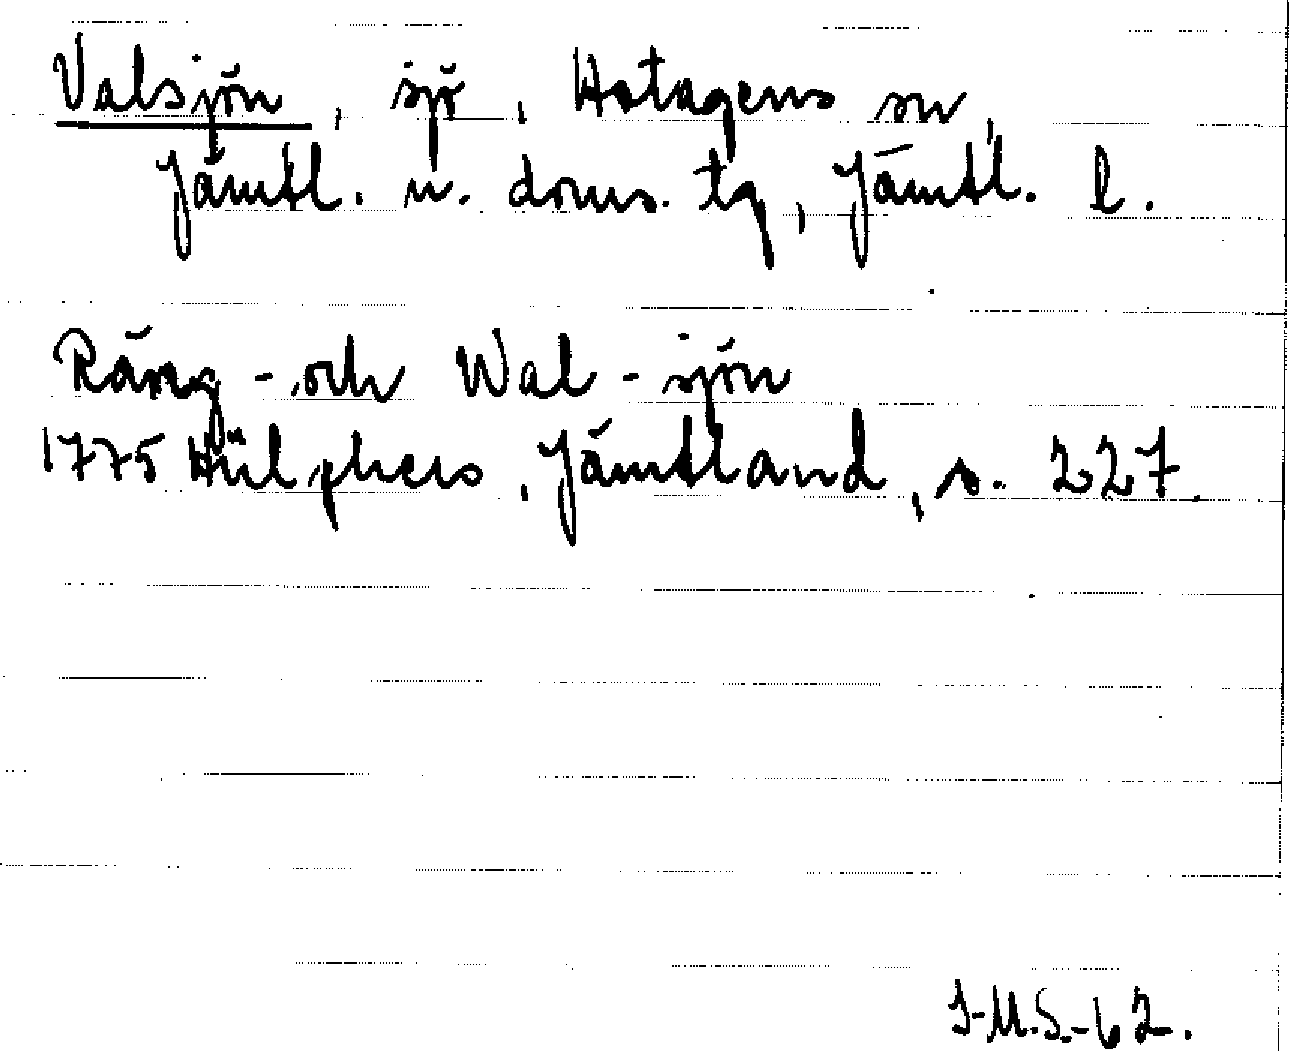 Valsjön, sjö, Hotagens sn,
Jämtl. n. doms. tg, Jämtl. l.
Räng-och Wal-sjön
1775 Hülphers, Jämtland, s. 227.
I-M.S.-62.